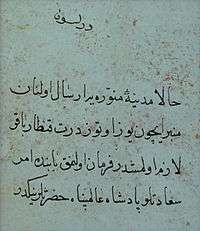 حالا مدینهٔ منوّره یه ارسال اولنان
منبر ایچون یوز اوتوز درت قنطار باقر
لازم اولمشدر فرمان اولنمق بابنده امر
سعادتلو پادشاه عالمپناه حضرتلرینکدر